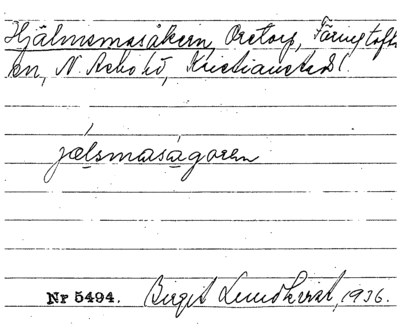 Hjälmsmasåkern, Oretorp, Färingtofta
sn, N. Åsbo hd, Kristianstads l.
jælsmaságoren
Nr 5494. Birgit Lundkvist, 1936.